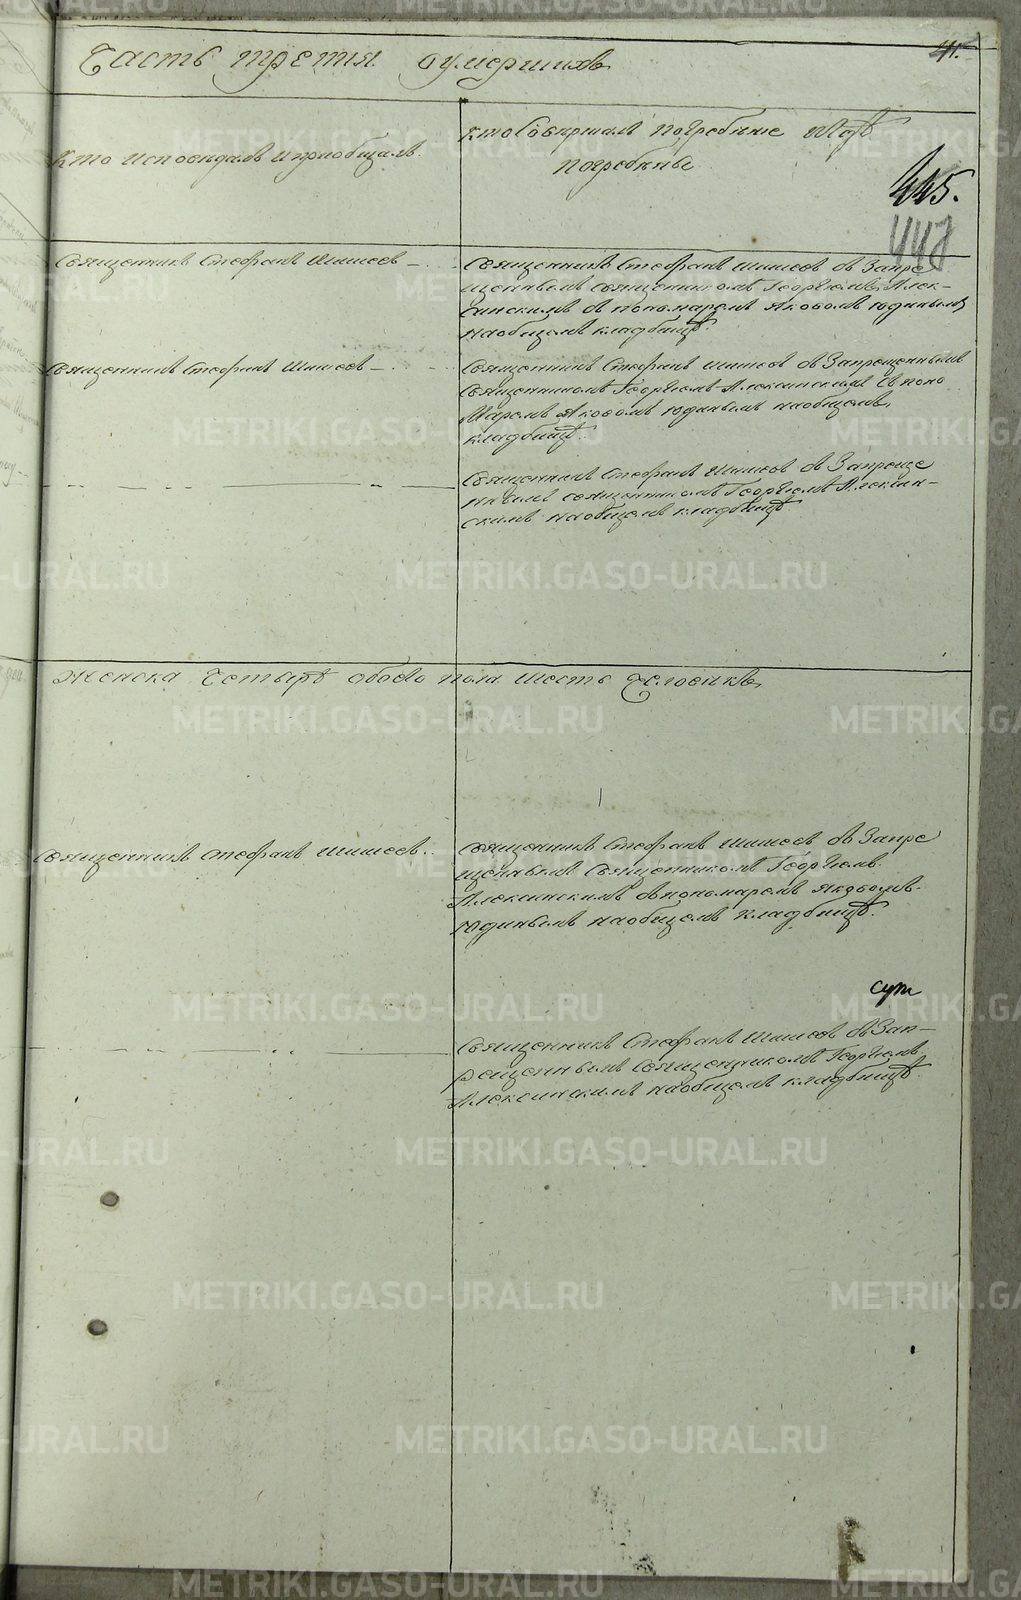 41.
Часть третія оумершихъ
Кто исповедалъ и приобщалъ.
Кто Совершалъ погребение игдѣ
погребены
445.
448
Священникъ Стефанъ Шишовъ
Священникъ Стефанъ Шишовъ съ Запре
щеннымъ священникомъ Георгіемъ Алек-
синскимъ съ пономаремъ Яковомъ Юдинымъ
наобщемъ кладбищѣ.
Священникъ Стефанъ Шишовъ
Священникъ Стефанъ Шишовъ съ Запрещеннымъ
священникомъ Георгіемъ Алексинскимъ съ поно
маремъ Яковомъ Юдинымъ наобщемъ
кладбищѣ.
Священникъ Стефанъ Шишовъ съ Запреще
ннымъ священникомъ Георгіемъ Алексин-
скимъ наобщемъ кладбищѣ
Женска Четырѣ обоево пола шесть человекъ,
Священникъ Стефанъ Шишовъ.
Священникъ Стефанъ Шишовъ съ Запре
щеннымъ Священникомъ Георгіемъ
Алексинскимъ съ пономаремъ Яковомъ
Юдинымъ наобщемъ кладбищѣ.
Священникъ Стефанъ Шишовъ съ Зап-
рещеннымъ священникомъ Георгіемъ
Алексинскимъ наобщемъ кладбищѣ.
METRIKI.GASO-URAL.RU